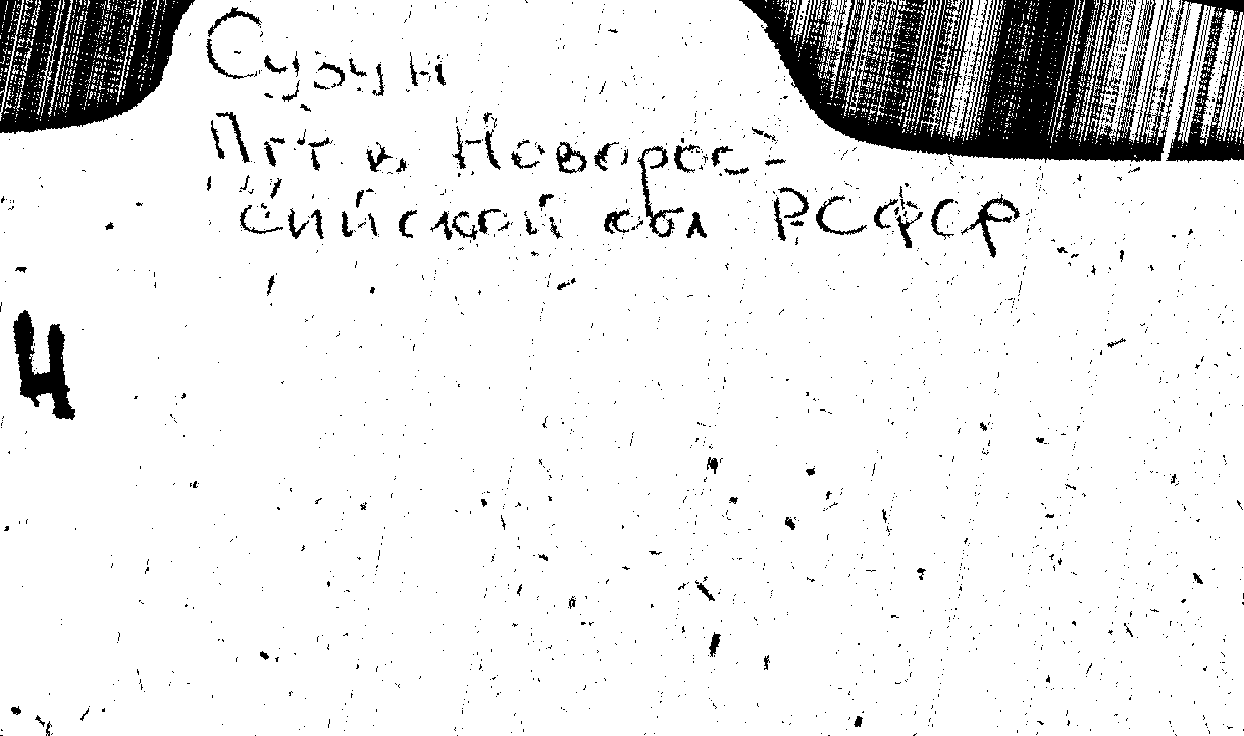 Сузун
Пгт в Новорос-
сийской обл РСФСР
Ч